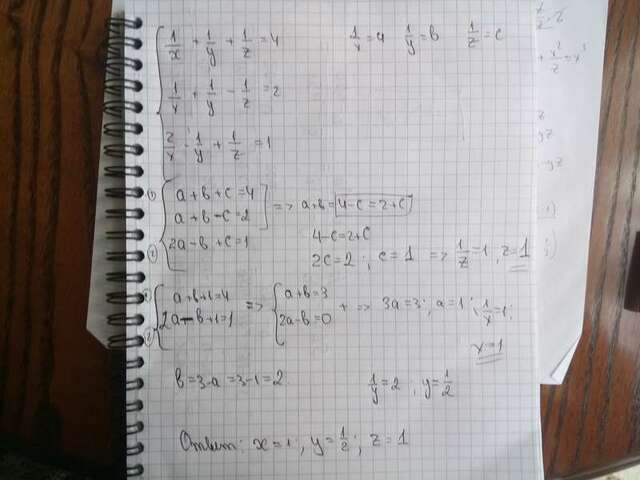 1/x + 1/y + 1/z = 4 1/x = a 1/y = b 1/z = c
1/x + 1/y - 1/z = 2
2/x - 1/y + 1/z = 1
a+b+c=4
a+b-c=2 => a+b=4-c=2+c
2a-b+c=1 4-c=2+c
2c=2; c=1 => 1/z=1; z=1
a+b+1=4 => a+b=3
2a-b+1=1 2a-b=0 + => 3a=3; a=1; 1/x=1;
x=1
b=3-a=3-1=2 1/y=2; y=1/2
Ответ: x=1; y=1/2; z=1